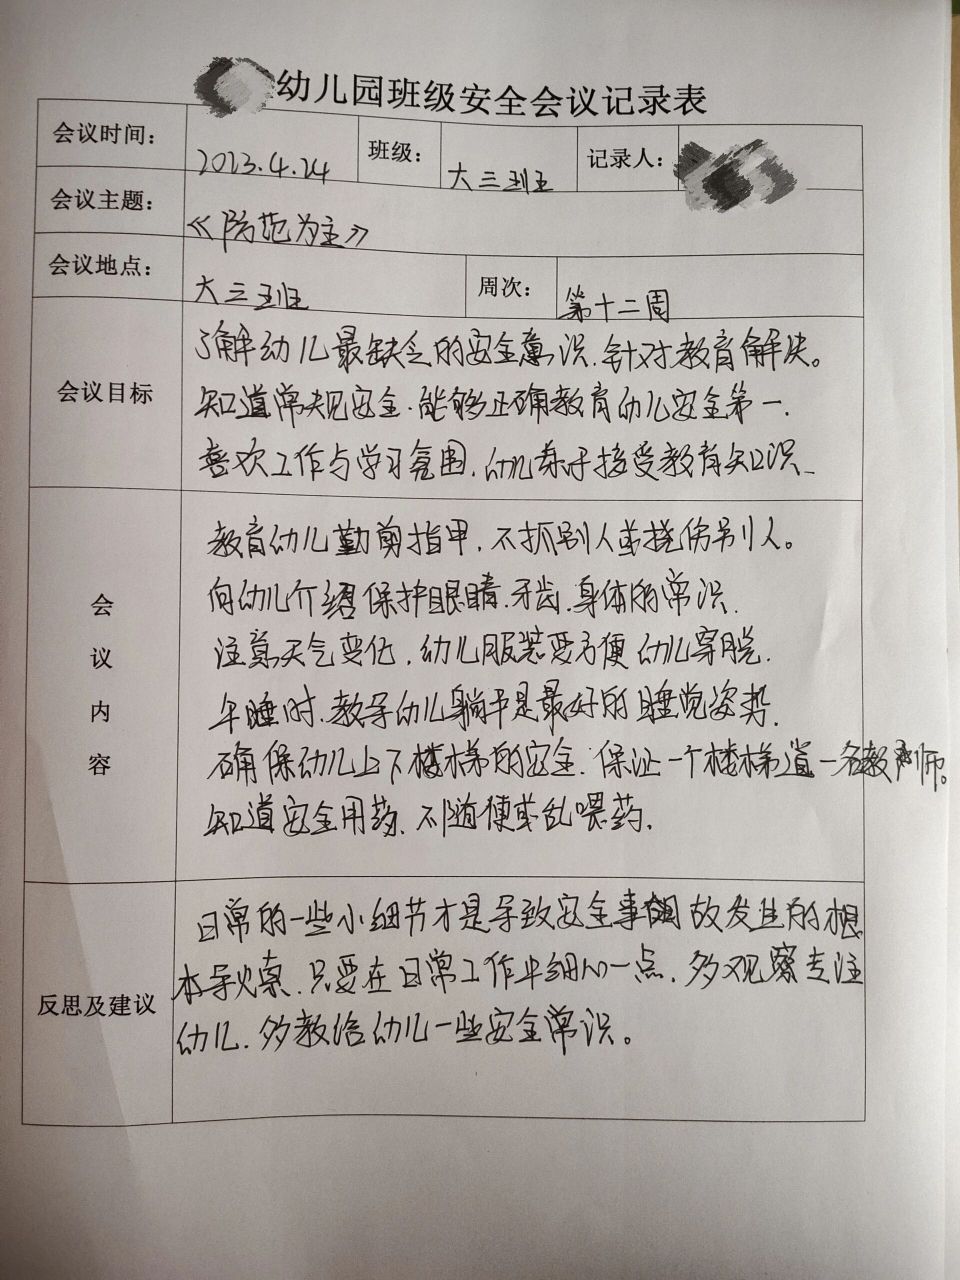 幼儿园班级安全会议记录表
会议时间: 2023.4.24 班级: 大三班 记录人:
会议主题: 《防范为主》
会议地点: 大三班 周次: 第十二周
会议目标
了解幼儿最缺乏的安全意识.针对教育解决。
知道常规安全.能够正确教育幼儿安全第一.
喜欢工作与学习氛围,幼儿乐于接受教育知识.
会议内容
教育幼儿勤剪指甲,不抓别人或挠伤别人。
向幼儿介绍保护眼睛.牙齿.身体的常识.
注意天气变化,幼儿服装要方便幼儿穿脱.
午睡时.教导幼儿躺平是最好的睡觉姿势.
确保幼儿上下楼梯的安全.保证一个楼梯道一名教师。
知道安全用药.不随便或乱喂药.
反思及建议
日常的一些小细节才是导致安全事故发生的根
本导火索.只要在日常工作中细心一点.多观察专注
幼儿.多教给幼儿一些安全常识。